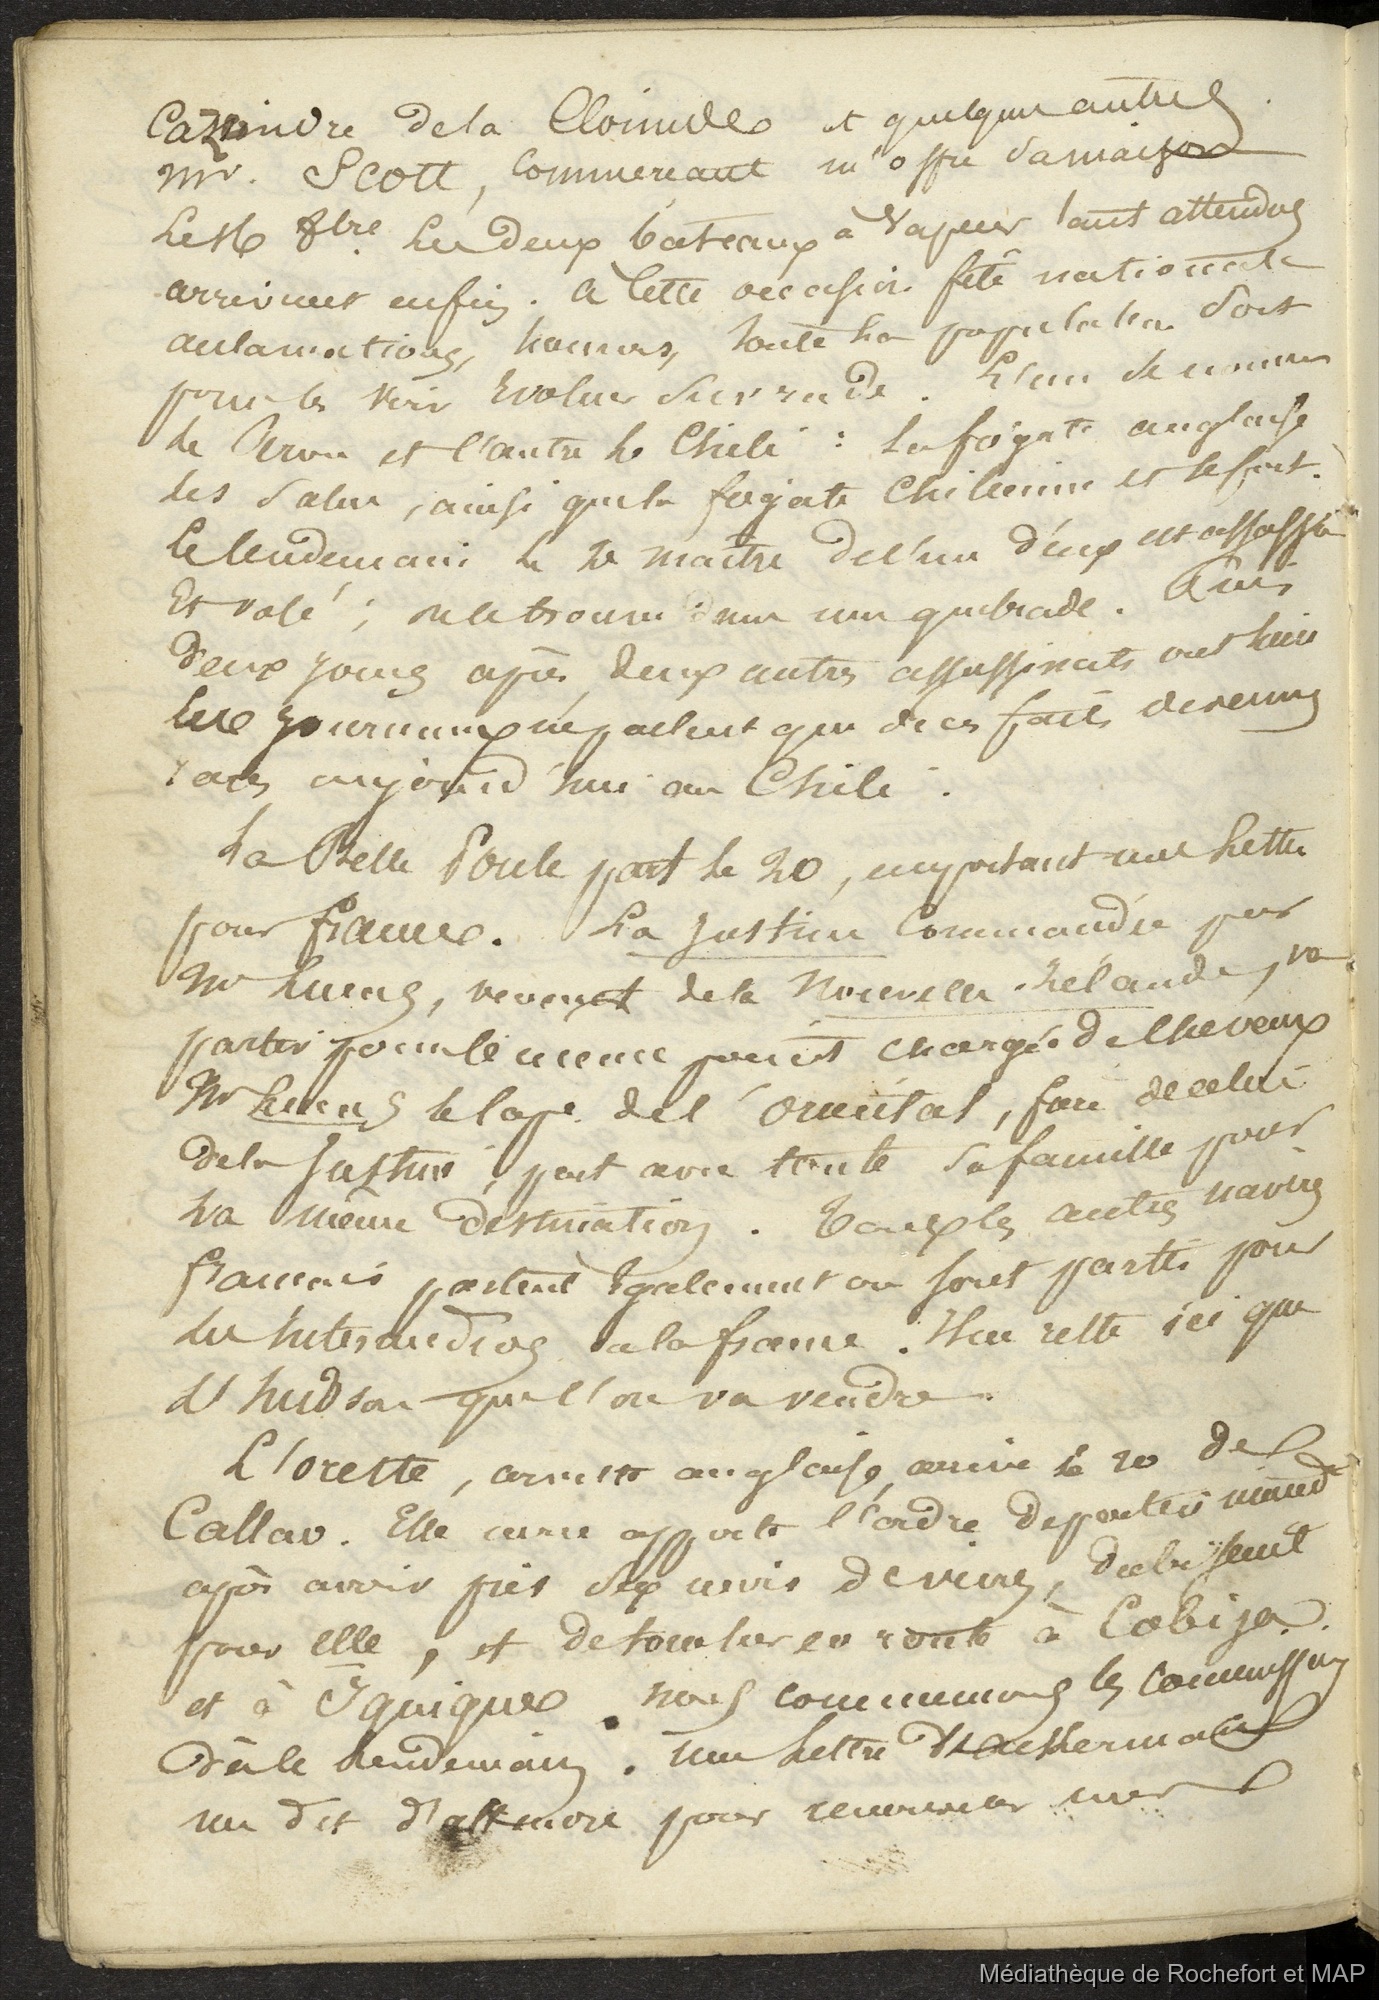 Cazimdre de la Clorinde et quelques autres.
Mr. Scott, commerçant m'offre sa maison
Le 16 8bre. Les deux bateaux à vapeur tant attendus
arrivent enfin. à cette occasion fête nationale
aclamations, houras, toute la population sort
pour les voir évoluer sur rade. L'un se nomme
le Pérou et l'autre le Chili : la frégate anglaise
les salue, ainsi que la frégate Chilienne et le fort.
Le lendemain le 2e maître de l'un d'eux est assassiné
et volé ; on le trouve dans une quebrade. Puis
deux jours après, deux autres assassinats ont lieu
les journaux ne parlent que de ces faits devenus
rares aujourd'hui au Chili.
La Belle Poule part le 20, emportant une lettre
pour france. La Justine commandée par
Mr Lucas, revenant de la Nouvelle Zélande, va
partir pour le même point chargée de chevaux
Mr Lucas le cape. de l'oriental, fait de celui
de la Justine, part avec toute sa famille pour
la même destination. Tous les autres navires
francais partent également ou sont partis pour
les intermedios ou la france. Il ne reste ici que
l'hudson que l'on va vendre.
L'oreste, anglaise, arrive le 20 de
Callao. Elle apporte l'ordre de partir immédt
après avoir pris six mois de vivres, d'eau
pour elle, et de toucher en route à Cobija.
et à Iquique. nous commençons les
dès le lendemain. Une lettre
me dit d'attendre pour